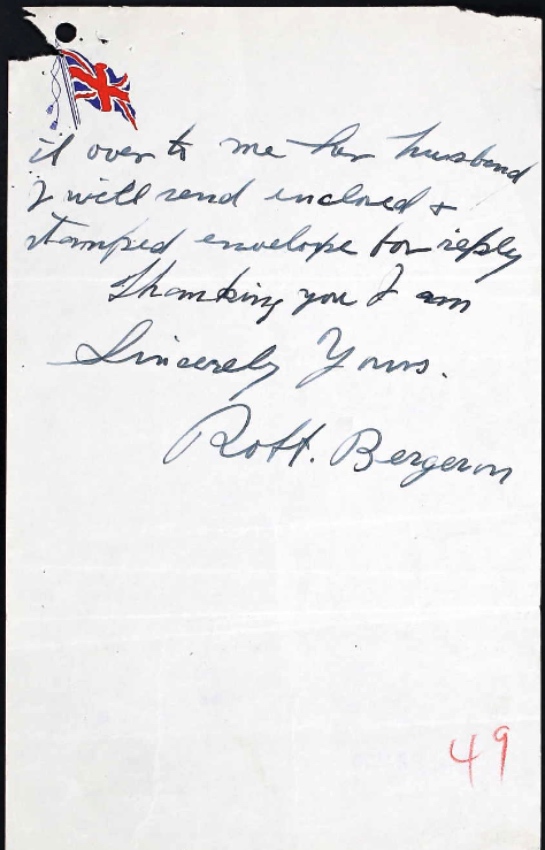 it over to me her husband
I will send inclosed &
stamped envelope for reply
Thanking you I am
Sincerely Yours.
Robt. Bergeron
49